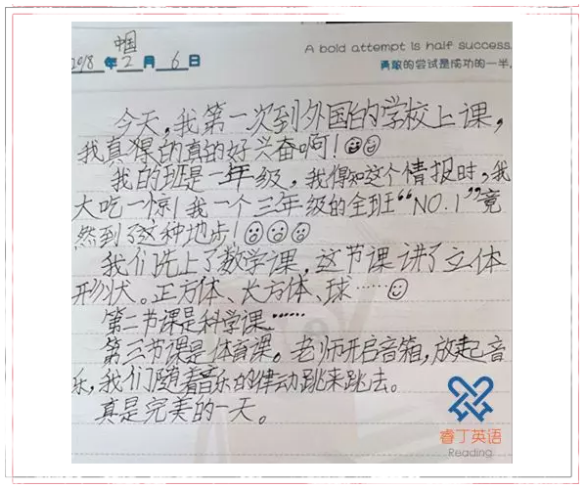 中国
2018年2月6日
A bold attempt is half success.
勇敢的尝试是成功的一半。
今天,我第一次到外国的学校上课,
我真得的真的好兴奋啊!
我的班是一年级,我得知这个情报时,我
大吃一惊!我一个三年级的全班“NO.1”竟
然到了这种地步!
我们先上了数学课,这节课讲了立体
形状。正方体、长方体、球……
第二节课是科学课……
第三节课是体育课。老师开启音箱,放起音
乐,我们随着音乐的律动跳来跳去。
真是完美的一天。
睿丁英语
Reading